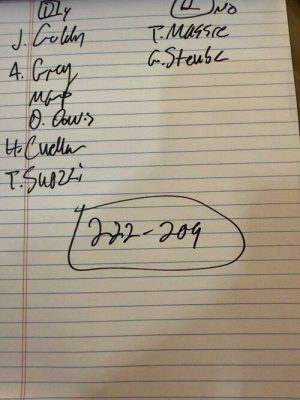 D y
J. Goldn
A. Gray
MGP
D. Davis
H. Cuellar
T. Suozzi
R No
T. Massie
G. Steube
222-209